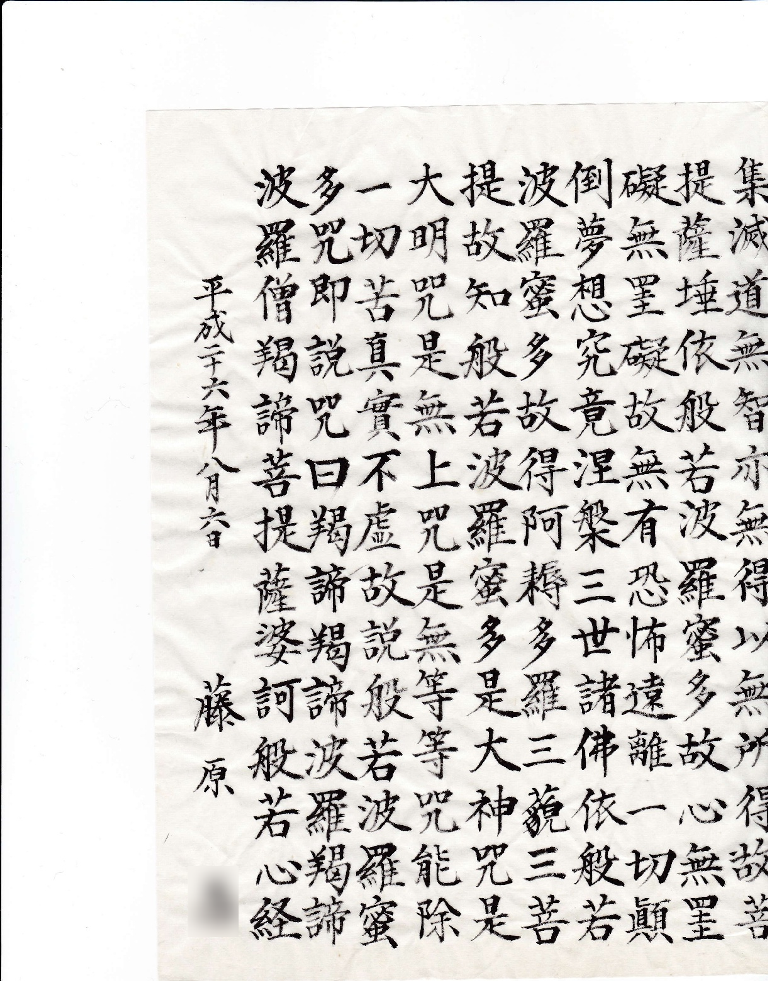 集滅道無智亦無得以無所得故菩
提薩埵依般若波羅蜜多故心無罣
礙無罣礙故無有恐怖遠離一切顚
倒夢想究竟涅槃三世諸佛依般若
波羅蜜多故得阿耨多羅三藐三菩
提故知般若波羅蜜多是大神咒是
大明咒是無上咒是無等等咒能除
一切苦真實不虚故説般若波羅蜜
多咒即説咒曰羯諦羯諦波羅羯諦
波羅僧羯諦菩提薩婆訶般若心経
平成二十六年八月六日 藤原